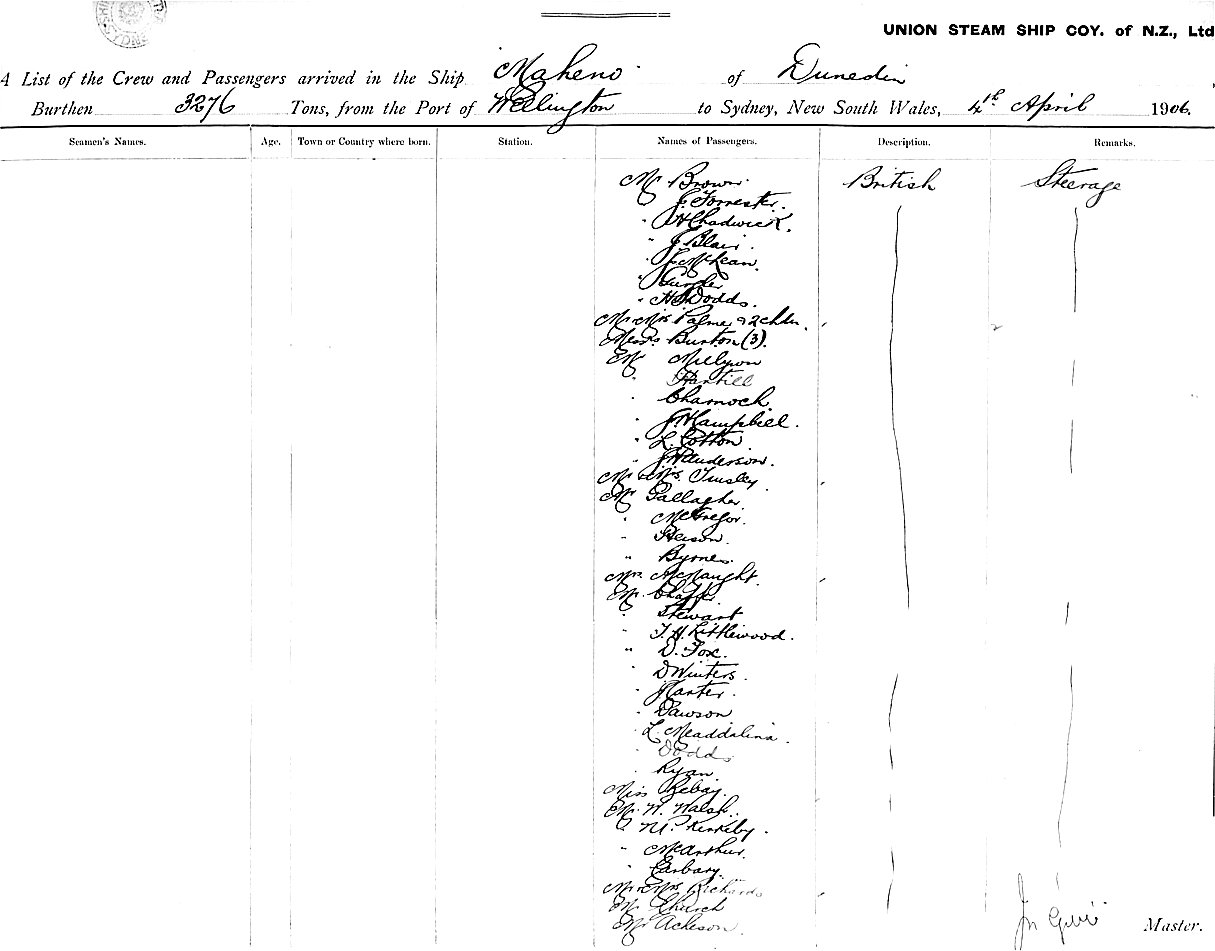 UNION STEAM SHIP COY. of N.Z., Ltd
A List of the Crew and Passengers arrived in the Ship Maheno of Dunedin
Burthen 3276 Tons, from the Port of Wellington to Sydney, New South Wales, 4th April 1906.
Seamen's Names. Age. Town or Country where born. Station. Names of Passengers. Description. Remarks.
Mr Brown British Steerage
" J. Forrester.
" H Chadwick.
" J Blair.
" J. McLean.
"
" H Dodds.
Mr & Mrs Palmer & 2 chdn.
Messrs Burton (3).
Mr

" Charnock
" J H Campbell.
" L. Cotton
" J Henderson.
Mr & Mrs. Tinsley
Mr Gallagher
" McGregor.
"
" Byrne
Mrs. McNaught.
Mr.
" Stewart
" T. H. Littlewood.
" D. Fox.
" D Winters.
"
" Dawson
" L.
" Dodds
" Ryan.
Miss
Mr. W. Walsh.
"
" McArthur.
"
Mr & Mrs Richards
Mr Church
Mr Acheson.
Master.